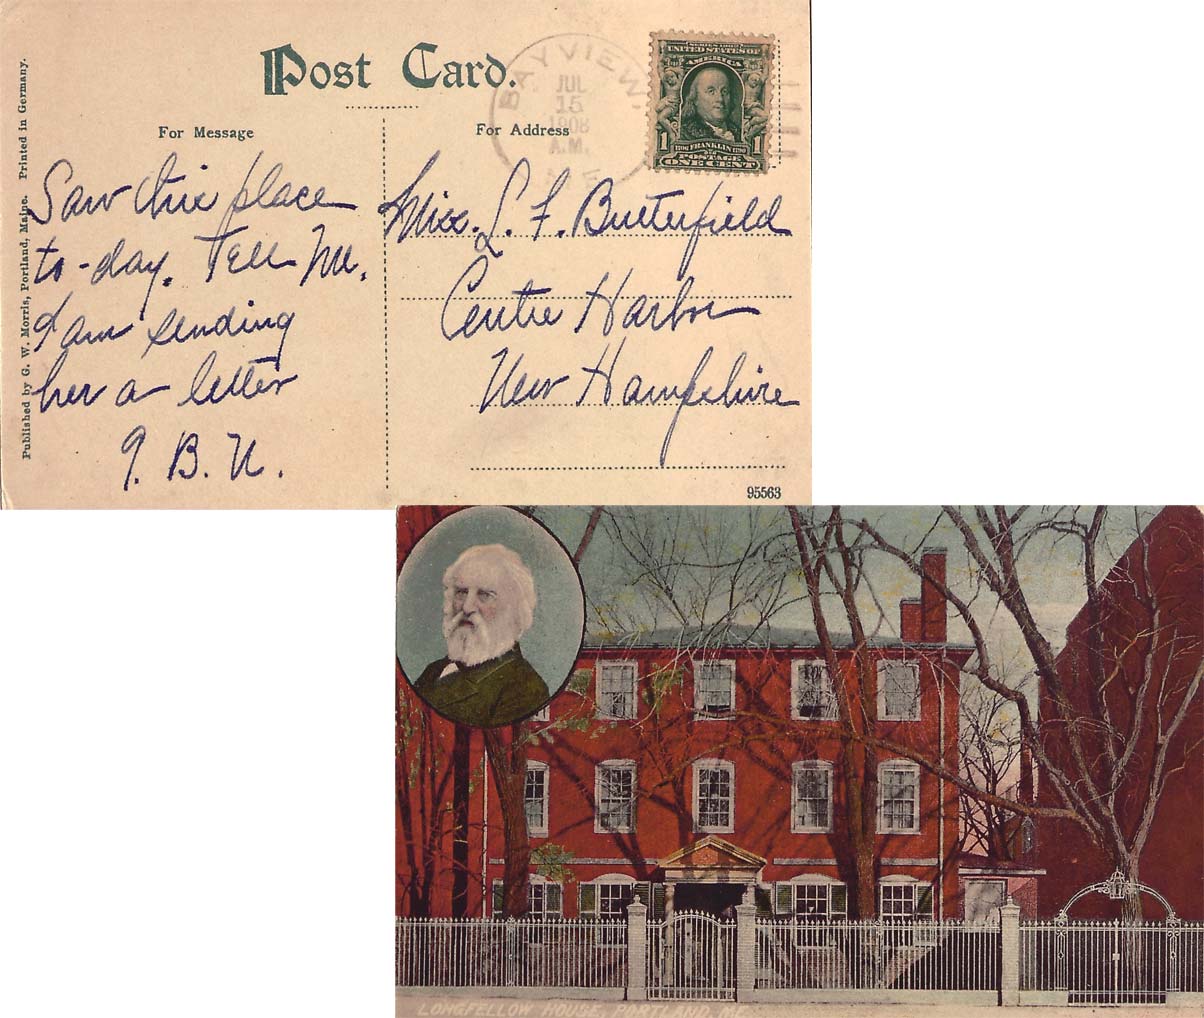 Post Card.
BAYVIEW.
JUL
15
1908
A.M.
ME
SERIES 1902
UNITED STATES OF
AMERICA
1 1706 FRANKLIN 1790 1
POSTAGE
ONE CENT
For Message
For Address
Published by G. W. Morris, Portland, Maine. Printed in Germany.
Saw this place
to-day. Tell M.
I am sending
her a letter
B. U.
Miss. L. F. Butterfield
Centre Harbor
New Hampshire
95563
LONGFELLOW HOUSE, PORTLAND, ME.